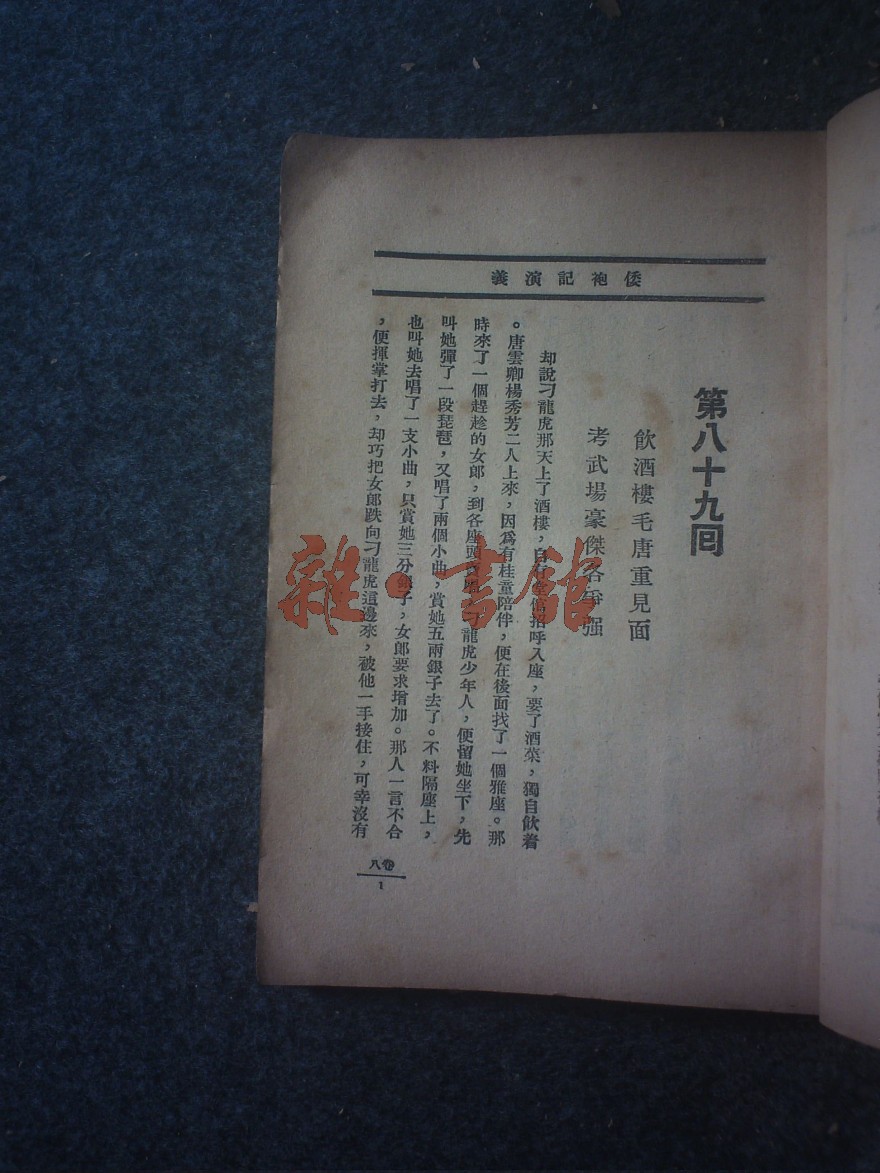 倭袍記演義
第八十九回
飲酒樓毛唐重見面
考武場豪傑各爭强
却說刁龍虎那天上了酒樓，自有堂倌招呼入座，要了酒菜，獨自飲着
。唐雲卿楊秀芳二人上來，因爲有桂童陪伴，便在後面找了一個雅座。那
時來了一個趕趁的女郎，到各座頭賣唱。刁龍虎少年人，便留她坐下，先
叫她彈了一段琵琶，又唱了兩個小曲，賞她五兩銀子去了。不料隔座上，
也叫她去唱了一支小曲，只賞她三分銀子，女郎要求增加。那人一言不合
，便揮掌打去，却巧把女郎跌向刁龍虎這邊來，被他一手接住，可幸沒有
卷八
1
雜·書館